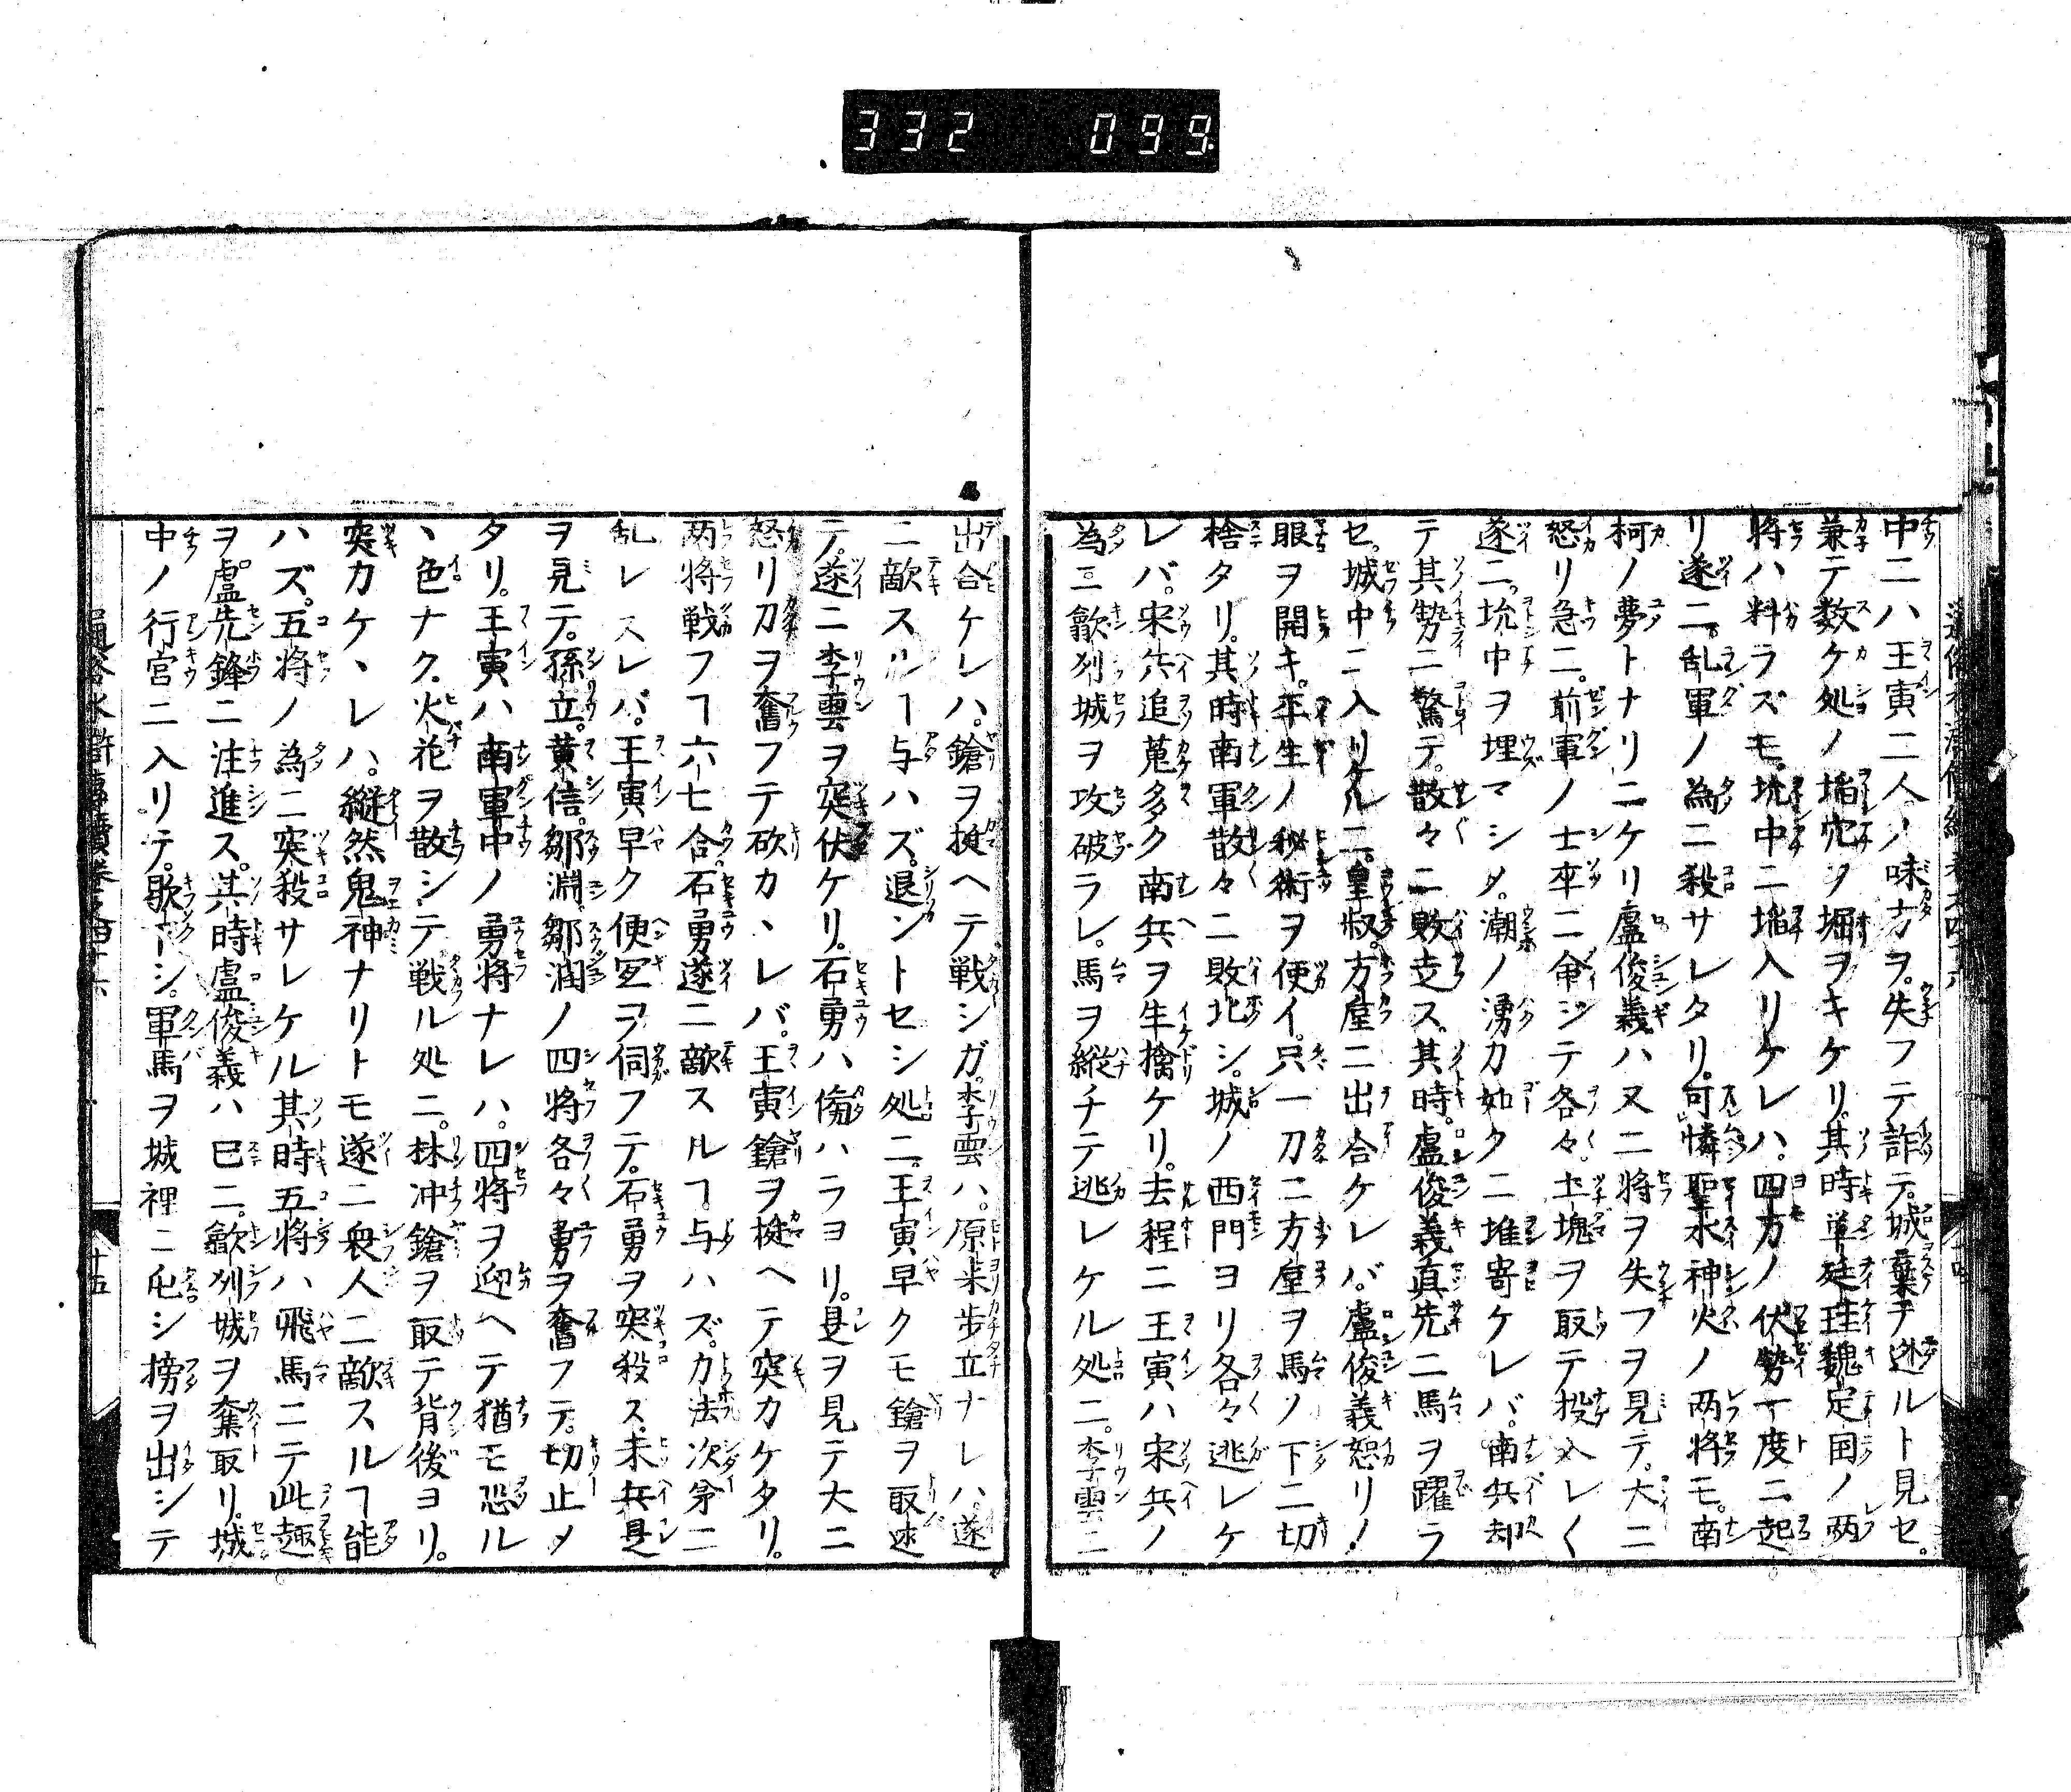 332 099
中ニハ王寅二人ノ味方ヲ。失フテ詐テ。城棄テ逃ルト見セ。
兼テ数ケ処ノ堀ヲキケリ。其時單廷珪魏定国ノ両
将ハ料ラズモ。坑中ニ堕入リケレハ。四方ノ伏勢一度ニ起
リ遂ニ。乱軍ノ為ニ殺サレタリ。可憐聖水神火ノ両将モ。南
柯ノ夢トナリニケリ盧俊義ハ又二将ヲ失フヲ見テ。大ニ
怒リ急ニ。前軍ノ士卒ニ命ジテ各々。土塊ヲ取テ投入レ〱
遂ニ。坑中ヲ埋マシメ。潮ノ湧カ如クニ堆寄ケレバ。南兵却
テ其勢ニ驚テ。散々ニ敗走ス。其時。盧俊義真先ニ馬ヲ躍ラ
セ。城中ニ入リケルニ。皇叔。方垕ニ出合ケレバ。盧俊義怒リノ
眼ヲ開キ。平生ノ秘術ヲ使イ。只一刀ニ方垕ヲ馬ノ下ニ切
捨タリ。其時南軍散々ニ敗北シ。城ノ西門ヨリ各々逃レケ
レバ。宋兵追蒐多ク南兵ヲ生擒ケリ。去程ニ王寅ハ宋兵ノ
為ニ歙州城ヲ攻破ラレ。馬ヲ縦チテ逃レケル処ニ。李雲ニ
出合ケレハ。鎗ヲ挺ヘテ戦シガ。李雲ハ。原来歩立ナレハ。遂
ニ敵スルヿ与ハズ。退ントセシ処ニ。王寅早クモ鎗ヲ取延
テ。遂ニ李雲ヲ突伏ケリ。石勇ハ傷ハラヨリ。是ヲ見テ大ニ
怒リ刀ヲ奮フテ砍カヽレバ。王寅鎗ヲ挺ヘテ突カケタリ。
両将戦フヿ六七合。石勇遂ニ敵スルヿ与ハズ。力法次第ニ
乱レスレバ。王寅早ク便冝ヲ伺フテ。石勇ヲ突殺ス。宋兵是
ヲ見テ。孫立。黄信。鄒淵。鄒潤ノ四将各々勇ヲ奮フテ。切止メ
タリ。王寅ハ南軍中ノ勇将ナレハ。四将ヲ迎ヘテ猶モ恐ル
ヽ色ナク。火花ヲ散シテ戦ル処ニ。林冲鎗ヲ取テ背後ヨリ。
突カケヽレハ。縦然鬼神ナリトモ遂ニ衆人ニ敵スルヿ能
ハズ。五将ノ為ニ突殺サレケル其時五将ハ飛馬ニテ此趣
ヲ。盧先鋒ニ注進ス。其時盧俊義ハ已ニ。歙州城ヲ奪取リ。城
中ノ行宮ニ入リテ。歇トシ。軍馬ヲ城裡ニ屯シ榜ヲ出シテ
十五